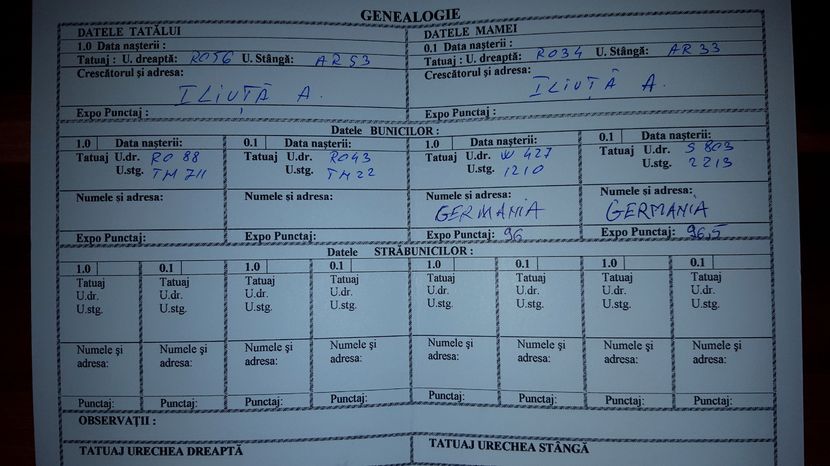 GENEALOGIE
DATELE TATĂLUI
1.0 Data nașterii :
Tatuaj : U. dreaptă: RO56 U. Stângă: AR 53
Crescătorul și adresa:
ILIUȚĂ A.
Expo Punctaj :
DATELE MAMEI
0.1 Data nașterii :
Tatuaj : U. dreaptă: RO34 U. Stângă: AR 33
Crescătorul și adresa:
ILIUȚĂ A.
Expo Punctaj:
Datele BUNICILOR :
1.0 Data nașterii:
Tatuaj U.dr. RO 88
U.stg. TM 711
Numele și adresa:
Expo Punctaj:
0.1 Data nașterii:
Tatuaj U.dr. RO43
U.stg. TM 22
Numele și adresa:
Expo Punctaj:
1.0 Data nașterii:
Tatuaj U.dr. W 427
U.stg. 1210
Numele și adresa:
GERMANIA
Expo Punctaj: 96
0.1 Data nașterii:
Tatuaj U.dr. S 803
U.stg. 2213
Numele și adresa:
GERMANIA
Expo Punctaj: 96,5
Datele STRĂBUNICILOR :
1.0 0.1 1.0 0.1 1.0 0.1 1.0 0.1
Tatuaj Tatuaj Tatuaj Tatuaj Tatuaj Tatuaj Tatuaj Tatuaj
U.dr. U.dr. U.dr. U.dr. U.dr. U.dr. U.dr. U.dr.
U.stg. U.stg. U.stg. U.stg. U.stg. U.stg. U.stg. U.stg.
Numele și Numele și Numele și Numele și Numele și Numele și Numele și Numele și
adresa: adresa: adresa: adresa: adresa: adresa: adresa: adresa:
Punctaj: Punctaj: Punctaj: Punctaj: Punctaj: Punctaj: Punctaj: Punctaj:
OBSERVAȚII :
TATUAJ URECHEA DREAPTĂ
TATUAJ URECHEA STÂNGĂ